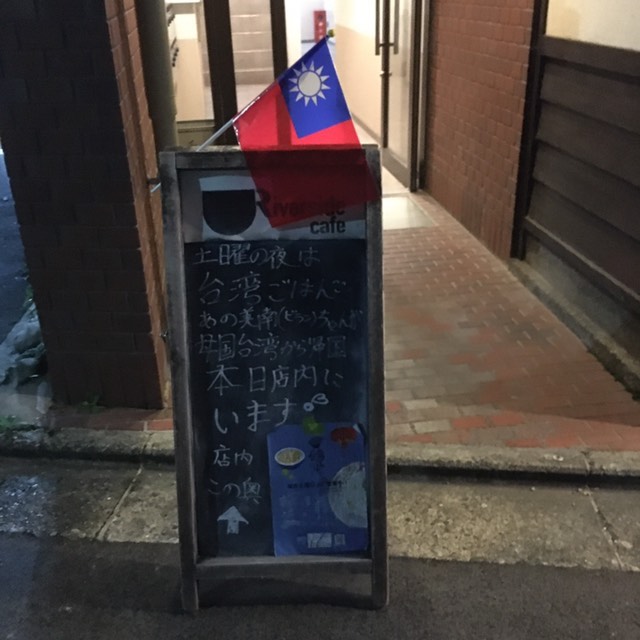 Riverside
cafe
土曜の夜は
台湾ごはんご
あの美南(ビナン)ちゃんが
母国台湾から帰国
本日店内に
います
店内
この奥